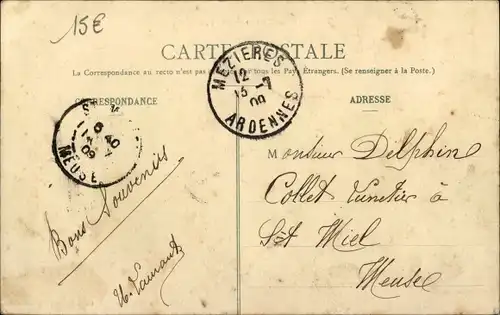 15€
CARTE POSTALE
La Correspondance au recto n'est pas tous les Pays Étrangers. (Se renseigner à la Poste.)
CORRESPONDANCE
ADRESSE
MEZIERES
12
13 -7
09
ARDENNES
6 40
09
MEUSE
Monsieur Delphin
Collet Lunetier à
St Miel
Meuse
Bons Souvenirs